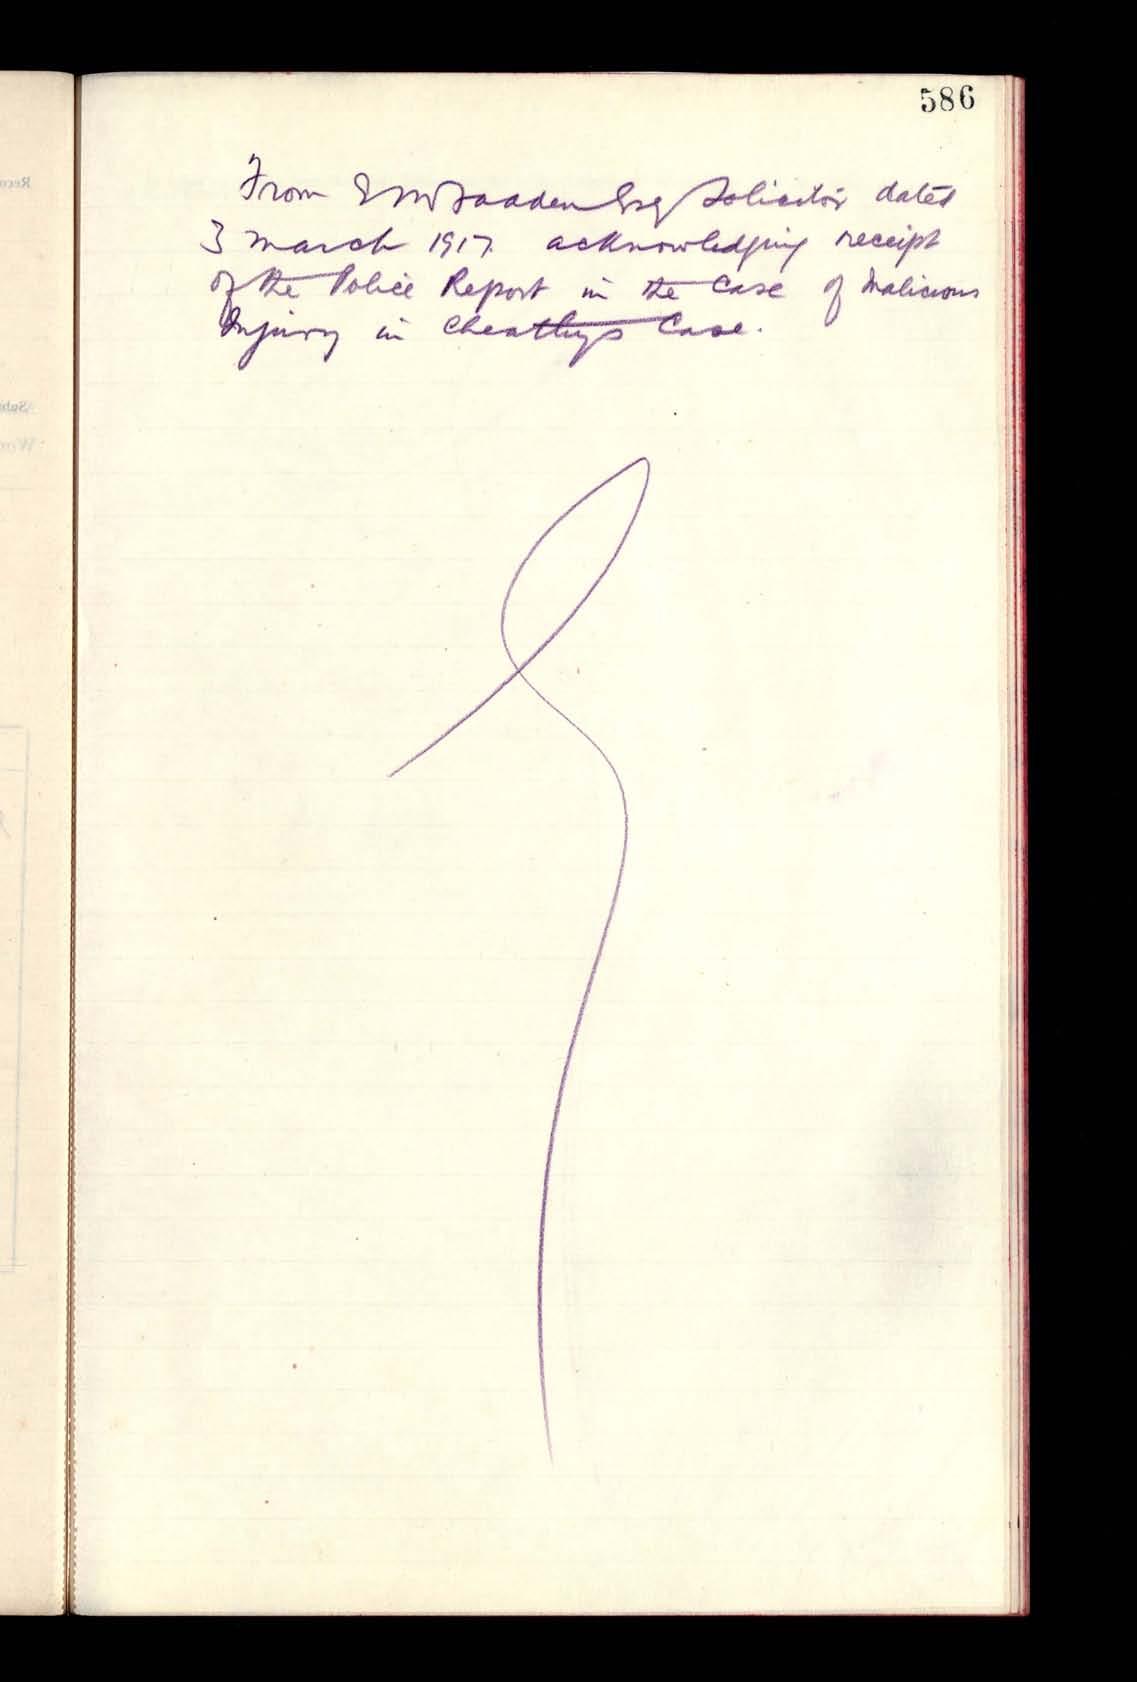 586
From Esq Solicitor dated
3 March 1917. acknowledging receipt
of the Police Report in the Case of Malicious
Injury in Case.